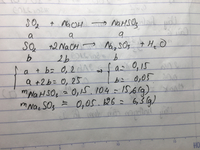 SO₂ + NaOH → NaHSO₃
a a a
SO₂ + 2NaOH → Na₂SO₃ + H₂O
b 2b b
{ a + b = 0,2 => { a = 0,15
a + 2b = 0,25 b = 0,05
mNaHSO₃ = 0,15.104 = 15,6(g)
mNa₂SO₃ = 0,05.126 = 6,3(g)